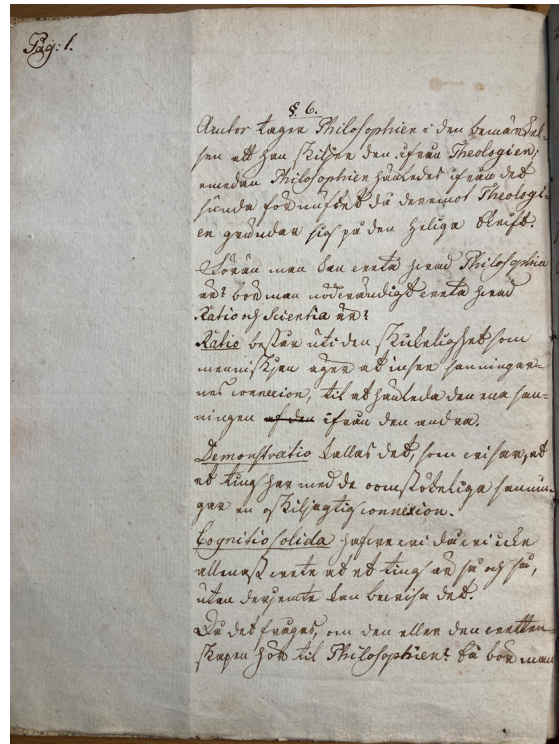 Pag: 1.
§. 6.
Auctor tager Philosophien i den bemärkel-
sen att han skiljer den ifrån Theologien;
emedan Philosophien härledes ifrån det
sunda förnuftet då deremot Theologi-
en grundar sig på den Heliga Skrift.
Förän man kan veta hvad Philosophia
är? bör man nödvändigt veta hvad
Ratio och Scientia är?
Ratio består uti den skickelighet som
menniskjan äger at inse sanningar-
nes connexion, til at härleda den ena san-
ningen af den ifrån den andra.
Demonstratio kallas det, som visar, at
et ting har med de oomstöteliga sannin-
gar en oskiljagtig connexion.
Cognitio solida hafve vi då vi icke
allenast vete at et ting är så och så,
utan derjemte kan bevisa det.
Då det frågas, om den eller den vetten-
skapen hör til Philosophien? så bör man